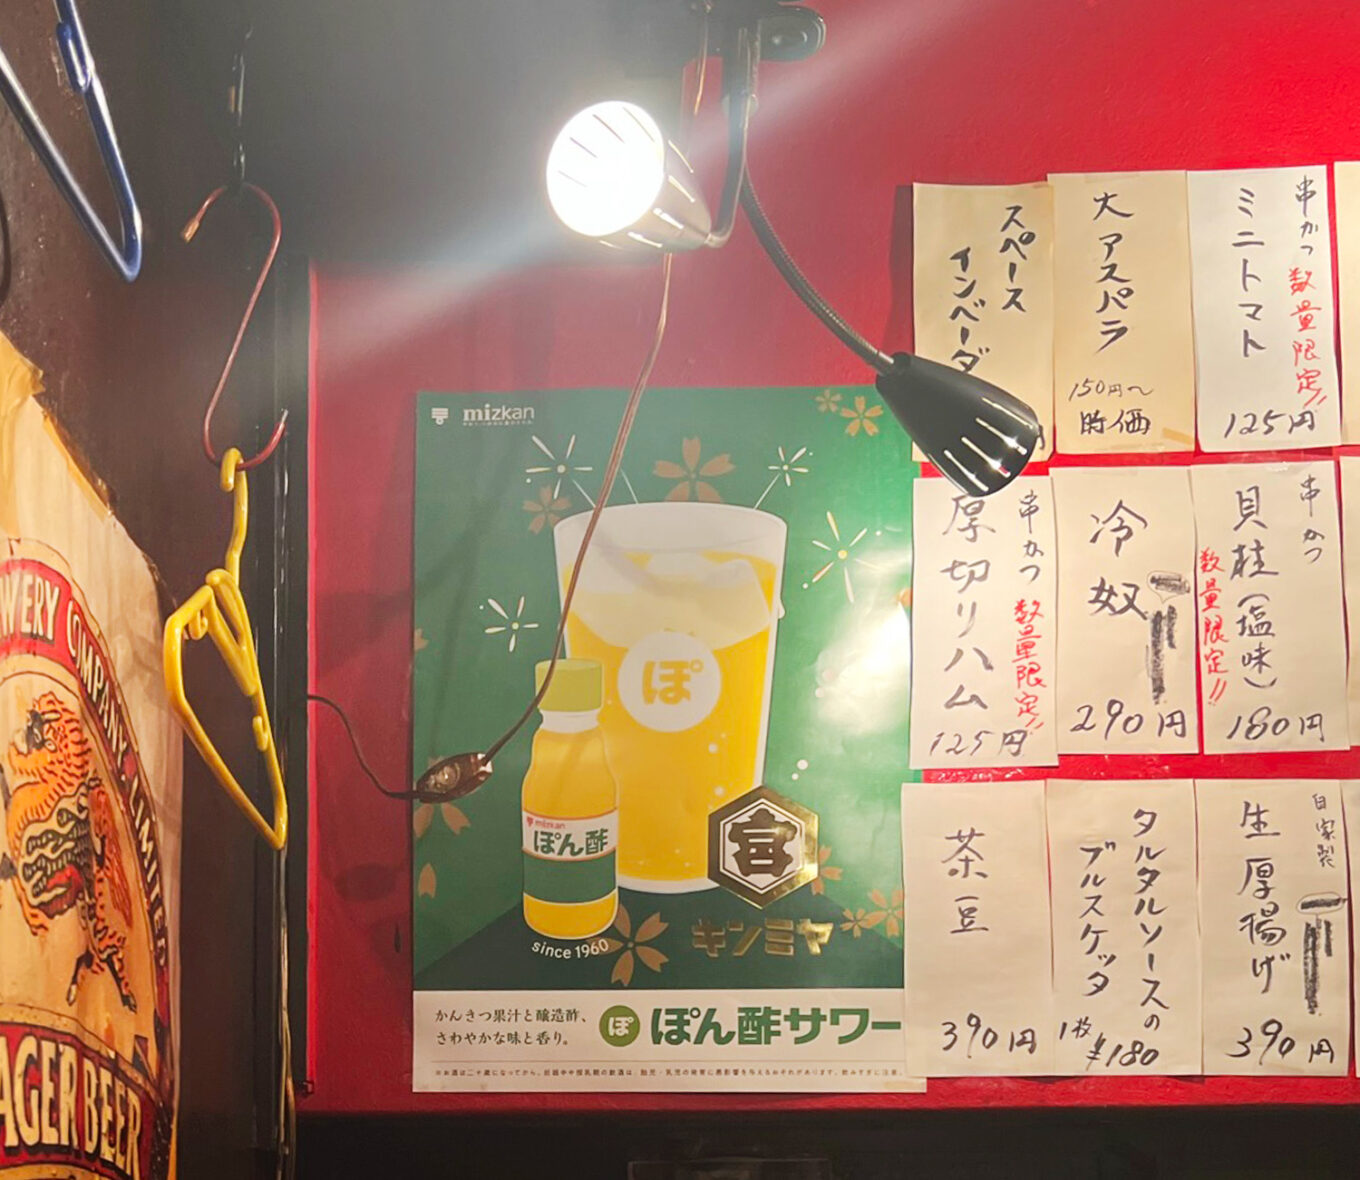 mizkan
ぽ
mizkan
ぽん酢
since 1960
宮
キンミヤ
かんきつ果汁と醸造酢、
さわやかな味と香り。
ぽ ぽん酢サワー
WERY COMPANY, LIMITED
AGER BEER
串かつ 数量限定!!
ミニトマト
125円
大アスパラ
150円〜
時価
スペース
インベーダ
串かつ
貝柱(塩味)
数量限定!!
180円
冷奴
290円
串かつ 数量限定!!
厚切りハム
125円
自家製
生厚揚げ
390円
タルタルソースの
ブルスケッタ
1枚
¥180
茶豆
390円